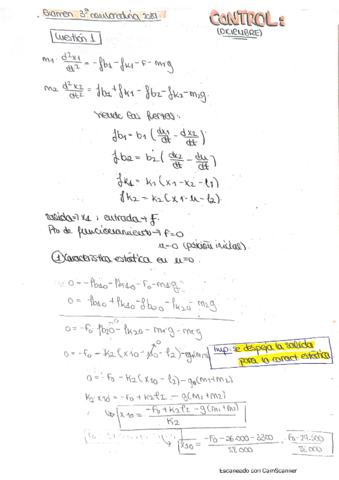 Examen 3ª convocatoria 2021
CONTROL:
(DICIEMBRE)
Cuestión 1
m1 · d²x1/dt² = -fb1 - fk1 - F - m1g
m2 d²x2/dt² = fb1 + fk1 - fb2 - fk2 - m2g.
siendo las fuerzas:
fb1 = b1 (dx1/dt - dx2/dt)
fb2 = b2 (dx2/dt - du/dt)
fk1 = k1 (x1 - x2 - l1)
fk2 = k2 (x1 - u - l2)
salida → x1 ; entrada → f.
Pto de funcionamiento → F=0
u=0 (posición inicial).
① Característica estática en u=0.
0 = -fb10 - fk10 - F0 - m1g
0 = fb10 + fk10 - fb20 - fk20 - m2g
0 = -F0 - fb20 - fk20 - m1g - m2g
0 = -F0 - k2 (x10 - u0 - l2) -
imp: se despeja la salida
para la caract estática
0 = -F0 - k2 (x10 - l2) - g(m1+m2)
k2 x10 = -F0 + k2l2 - g(m1+m2)
x10 = -F0 + k2l2 - g(m1+m2) / k2
x10 =
Escaneado con CamScanner